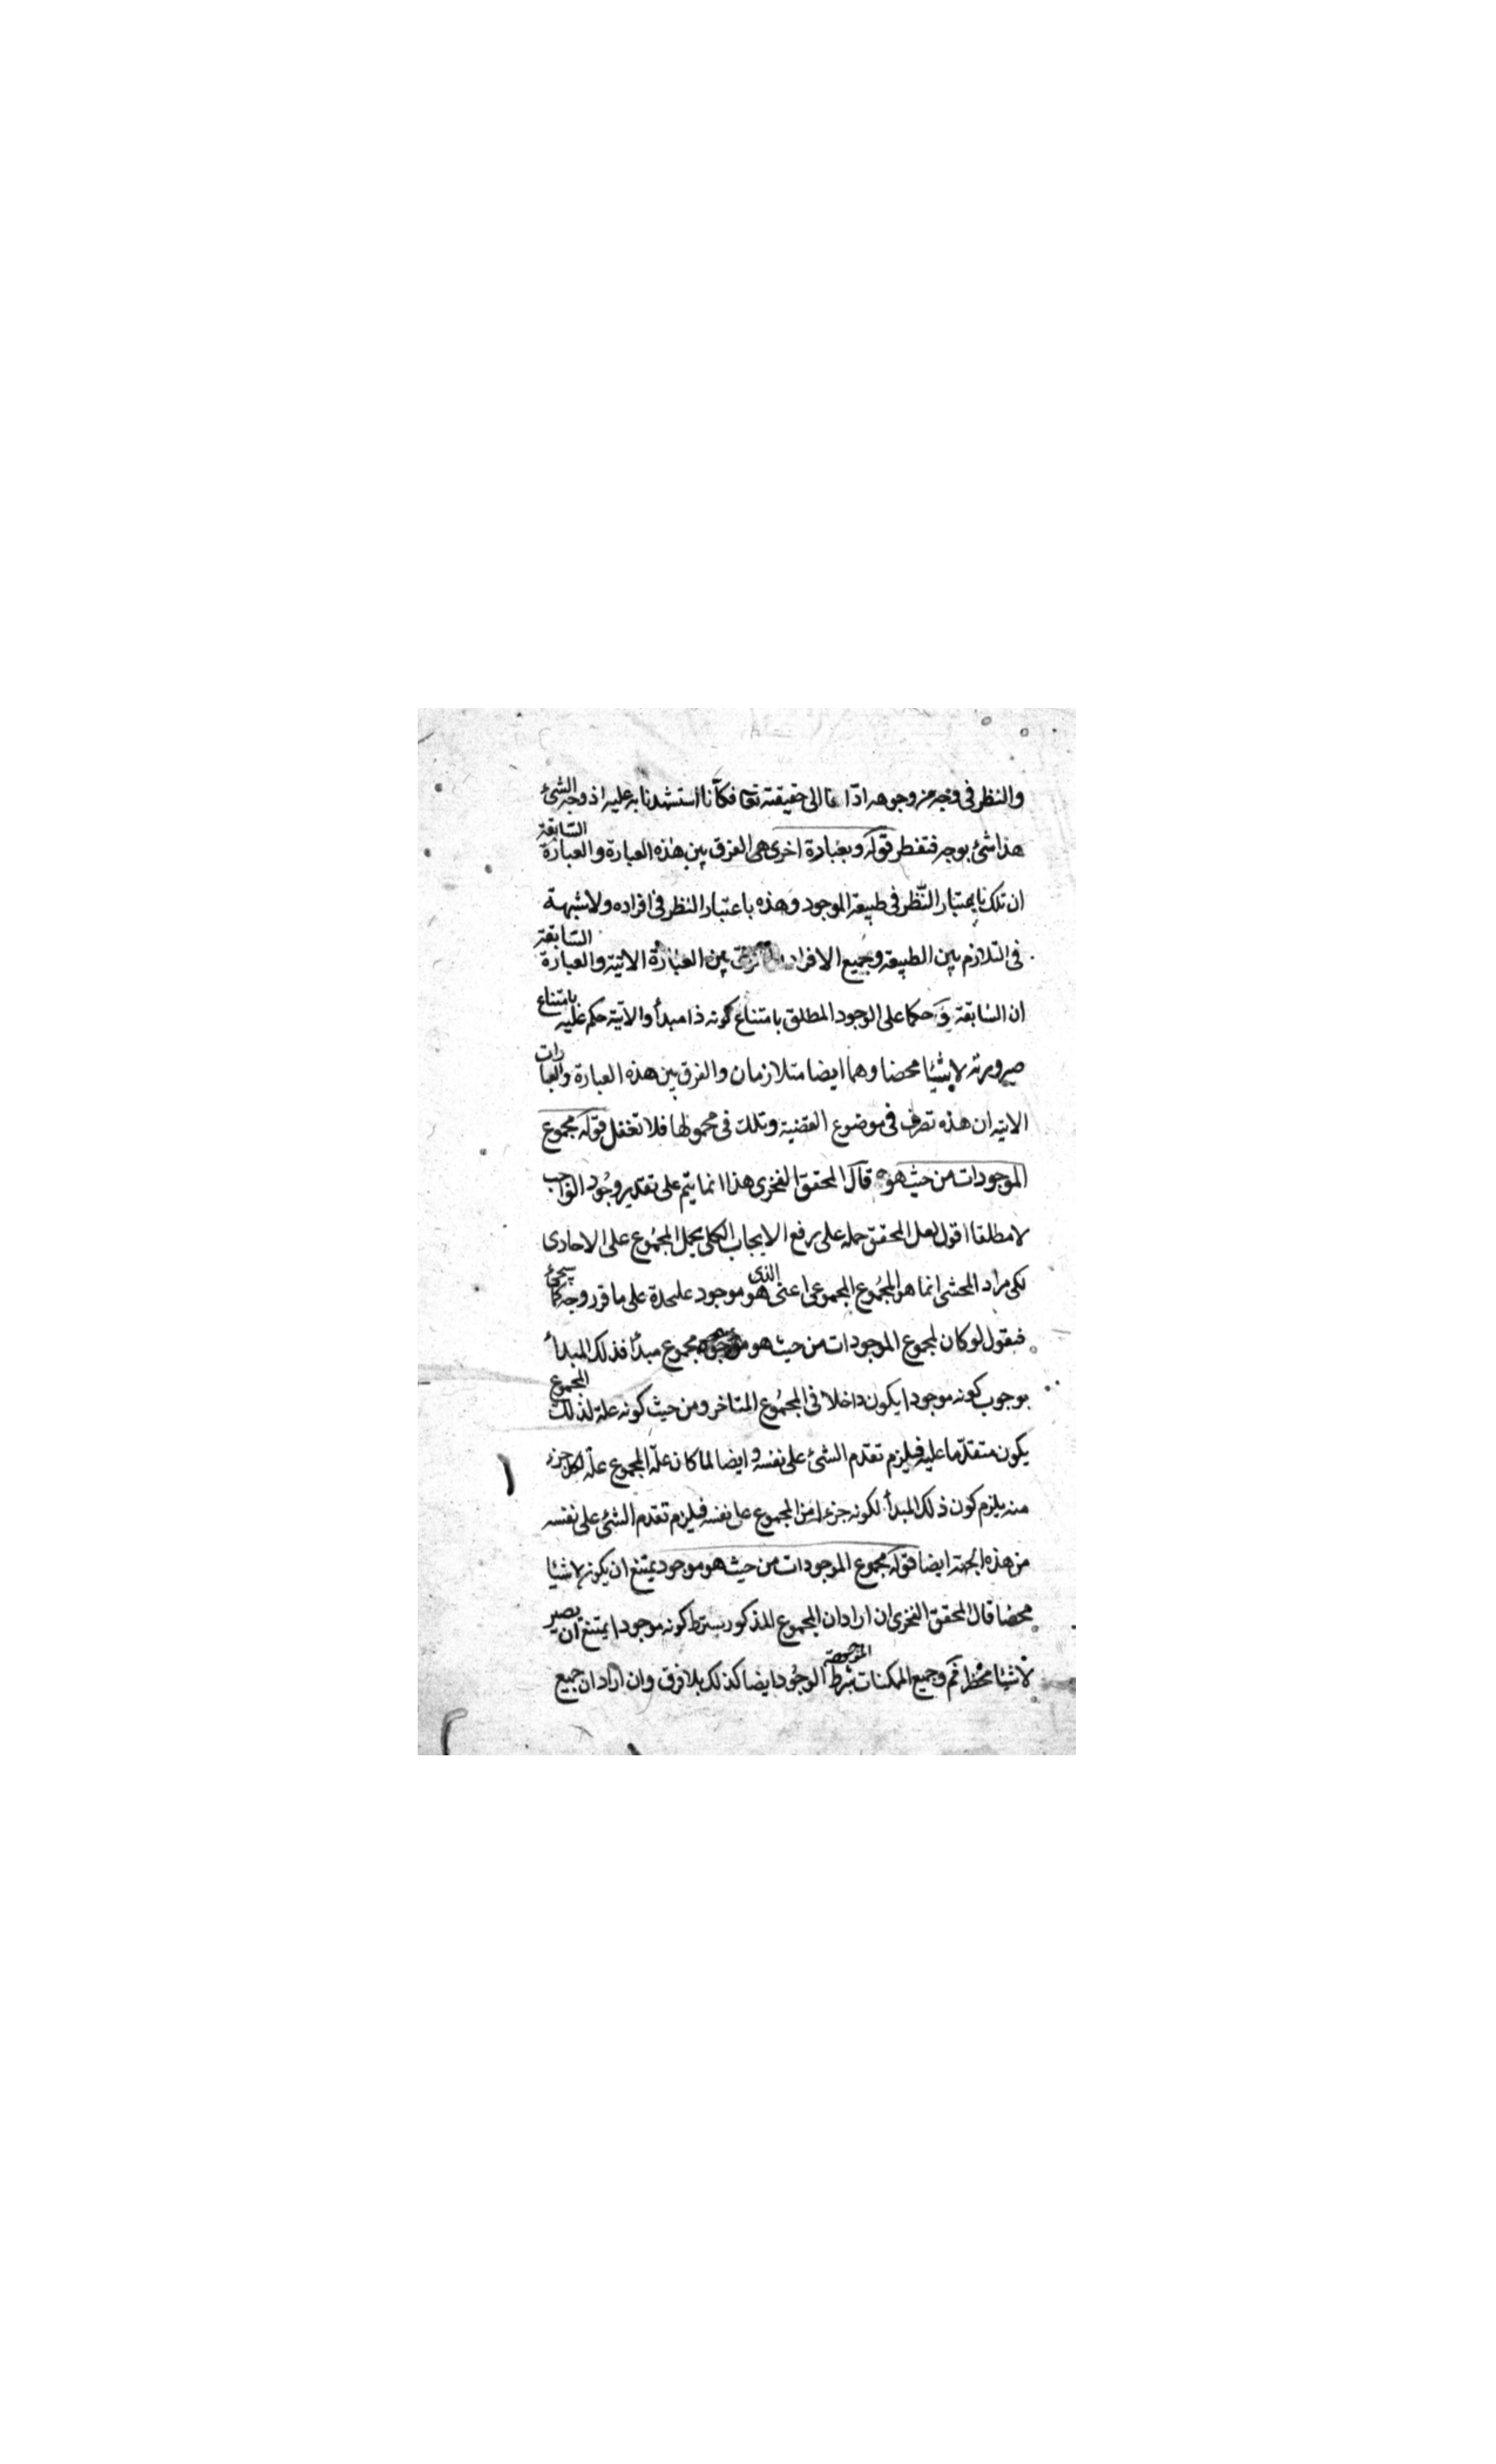 والنظر في وجه من وجوهه ادّانا الى حقيقته تعا فكأنا استشهدنا به عليه اذ وجه الشئ
هذا شئ بوجه فتفطن قوله وبعبارة اخرى هى الفرق بين هذه العبارة والعبارة السابقة
ان تلك باعتبار النظر في طبيعة الموجود وهذه باعتبار النظر في افراده ولا شبهة
في التلازم بين الطبيعة وجميع الافراد بين العبارة الاتية والعبارة السابقة
ان السابقة حكما على الوجود المطلق بامتناع كونه ذا مبدأ والاتية حكم عليه بامتناع
صيرورته لا شيئا محضا وهما ايضا متلازمان والفرق بين هذه العبارة والعبارات
الاتية ان هذه تصرف في موضوع القضية وتلك في محمولها فلا تغفل قوله مجموع
الموجودات من حيث هو قال المحقق الفخرى هذا انما يتم على تقدير وجود الواجب
لا مطلقا اقول لعل المحقق حمله على رفع الايجاب الكلى بحمل المجموع على الاحادى
لكن مراد المحشى انما هو المجموع المجموعى اعنى الذى هو موجود عليحدة على ما قرر وجه كما سيجئ
فنقول لو كان لمجموع الموجودات من حيث هو مجموع مبدأ فذلك المبدأ
بوجوب كونه موجودا يكون داخلا في المجموع المتاخر ومن حيث كونه علة لذلك المجموع
يكون متقدّما عليه فيلزم تقدم الشئ على نفسه وايضا لما كان علّة المجموع علّة لكل جزء
منه يلزم كون ذلك المبدأ لكونه جزءا من المجموع على نفسه فيلزم تقدم الشئ على نفسه
من هذه الجهة ايضا قوله مجموع الموجودات من حيث هو موجود يمتنع ان يكون لا شيئا
محضا قال المحقق الفخرى ان اراد ان المجموع المذكور بشرط كونه موجودا يمتنع ان يصير
لا شيئا محضا وجميع الممكنات بشرط الوجود ايضا كذلك بلا فرق وان اراد ان جميع